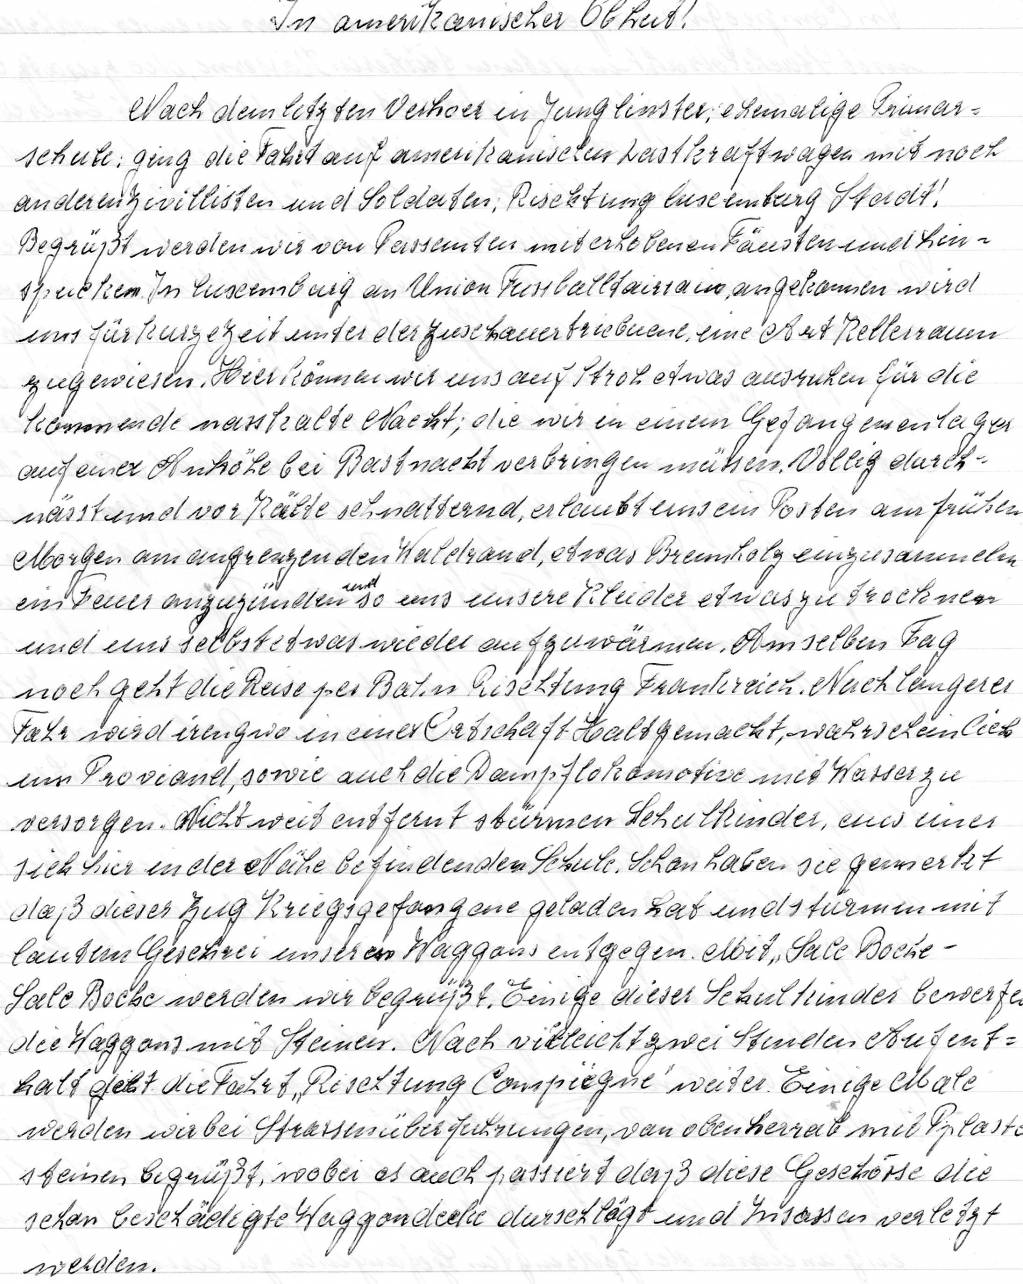 In amerikanischer Obhut!
Nach dem letzten Verhoer in Junglinster, ehemalige Primar=
schule; ging die Fahrt auf amerikanischen Lastkraftwagen mit noch
anderen Zivillisten und Soldaten, Rischtung luxemburg Stadt!
Begrüßt werden wir von Passanten mit erhobenen Fäusten und hin=
spucken. In luxemburg an Union Fussballtairrain, angekommen wird
uns für kurze Zeit unter der Zuschauertriebuene, eine Art Kellerraum
zugewiesen. Hier können wir uns auf Stroh etwas ausruhen für die
kommende nasskalte Nacht; die wir in einem Gefangenenlager
auf einer Anhöhe bei Bastnacht verbringen müssen. Völlig durch-
nässt und vor Kälte schnatternd, erlaubt uns ein Posten am frühen
Morgen am angrenzenden Waldrand, etwas Brennholz einzusammeln
ein Feuer anzuzünden und so uns unsere Kleider etwas zu trocknen
und uns selbst etwas wieder aufzuwärmen. Am selben Tag
noch geht die Reise per Bahn Rischtung Frankreich. Nach längerer
Fahr wird irengwo in einer Ortschaft Halt gemacht, wahrscheinlich
um Proviand, sowie auch die Dampflokomotive mit Wasser zu
versorgen. Nicht weit entfernt stürmen Schulkinder, aus einer
sich hier in der Nähe befindenden Schule. Schon haben sie gemerkt
daß dieser Zug Kriegsgefangene geladen hat und stürmen mit
lautem Geschrei unseren Waggons entgegen. Mit „Sale Boche-
Sale Boche werden wir begrüßt. Einige dieser Schulkinder bewerfen
die Waggons mit Steinen. Nach vielleicht zwei Stunden Aufent=
halt geht die Fahrt „Rischtung Compiègne" weiter. Einige Male
werden wir bei Strassenüberführungen, von oben herrab mit Pplaster
steinen begrüßt, wobei es auch passiert daß diese Geschösse die
schon beschädigte Waggondecke durschlägt und Insassen verletzt
werden.